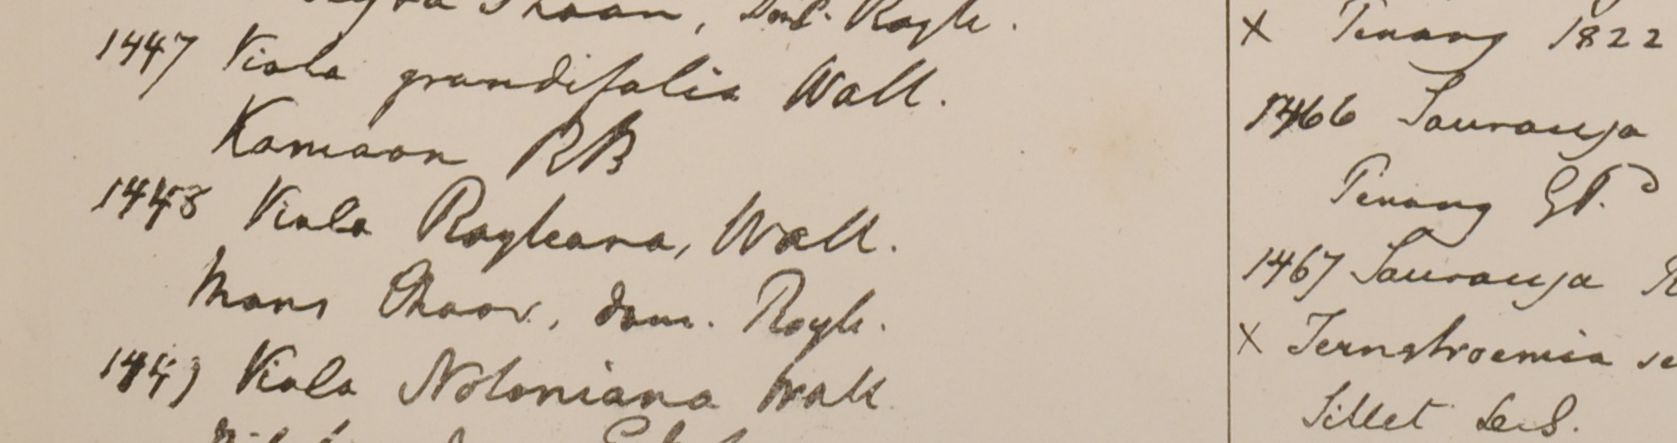 Dom. Royle.
1447 Viola grandifolia Wall.
Kamaon RB
1448 Viola Royleana, Wall.
Mons Choor, dom. Royle.
1449 Viola Notoniana Wall
X Penang 1822
1466 Saurauja
Penang GP.
1467 Saurauja
X Ternstroemia
Sillet